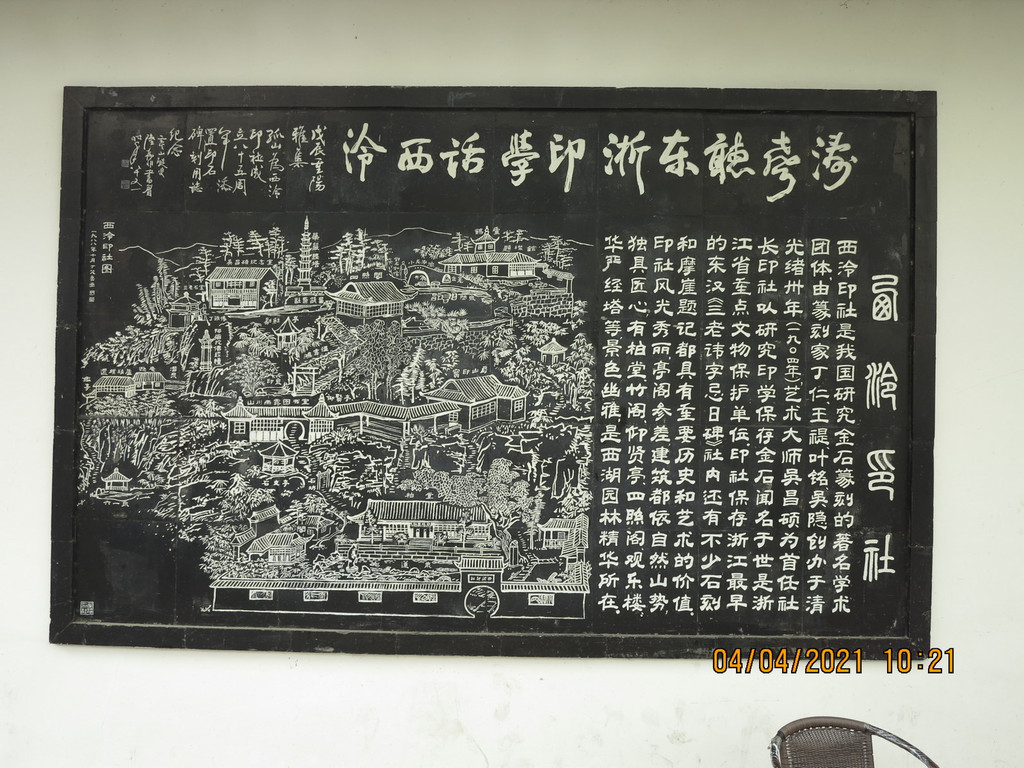 涛声聽东浙印學话西泠
戊辰重阳
雅集
孤山为西泠
印社成
立八十五周
年
置印石
碑刻用志
纪念
西泠印社
西泠印社是我国研究金石篆刻的著名学术
团体.由篆刻家丁仁王禔叶铭吴隐创办于清
光绪卅年(一九0四年)艺术大师吴昌硕为首任社
长印社以研究印学保存金石闻名于世是浙
江省重点文物保护单位印社保存浙江最早
的东汉《三老讳字忌日碑》社内还有不少石刻
和摩崖题记都具有重要历史和艺术的价值.
印社风光秀丽亭阁参差建筑都依自然山势
独具匠心有柏堂竹阁仰贤亭四照阁观乐楼
华严经塔等景色幽雅是西湖园林精华所在
西泠印社图
四照阁
山川雨露图书室
柏堂
04/04/2021 10:21